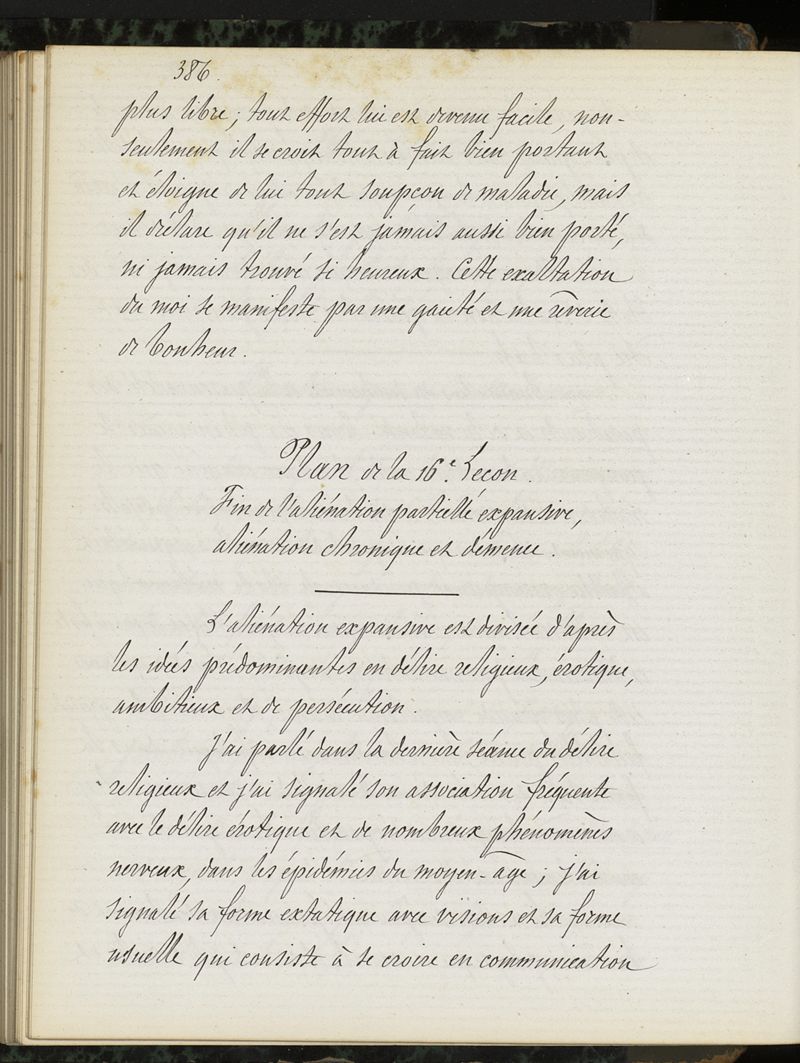 386.
plus libre ; tout effort lui est devenu facile, non-
seulement il se croit tout à fait bien portant
et éloigne de lui tout soupçon de maladie, mais
il déclare qu'il ne s'est jamais aussi bien porté,
ni jamais trouvé si heureux. Cette exaltation
du moi se manifeste par une gaieté et une rêverie
de bonheur.
Plan de la 16e. Leçon.
Fin de l'aliénation partielle expansive,
aliénation chronique et démence.
L'aliénation expansive est divisée d'après
les idées prédominantes en délire religieux, érotique,
ambitieux et de persécution.
J'ai parlé dans la dernière séance du délire
religieux et j'ai signalé son association fréquente
avec le délire érotique et de nombreux phénomènes
nerveux, dans les épidémies du moyen-âge ; j'ai
signalé sa forme extatique avec visions et sa forme
usuelle qui consiste à se croire en communication